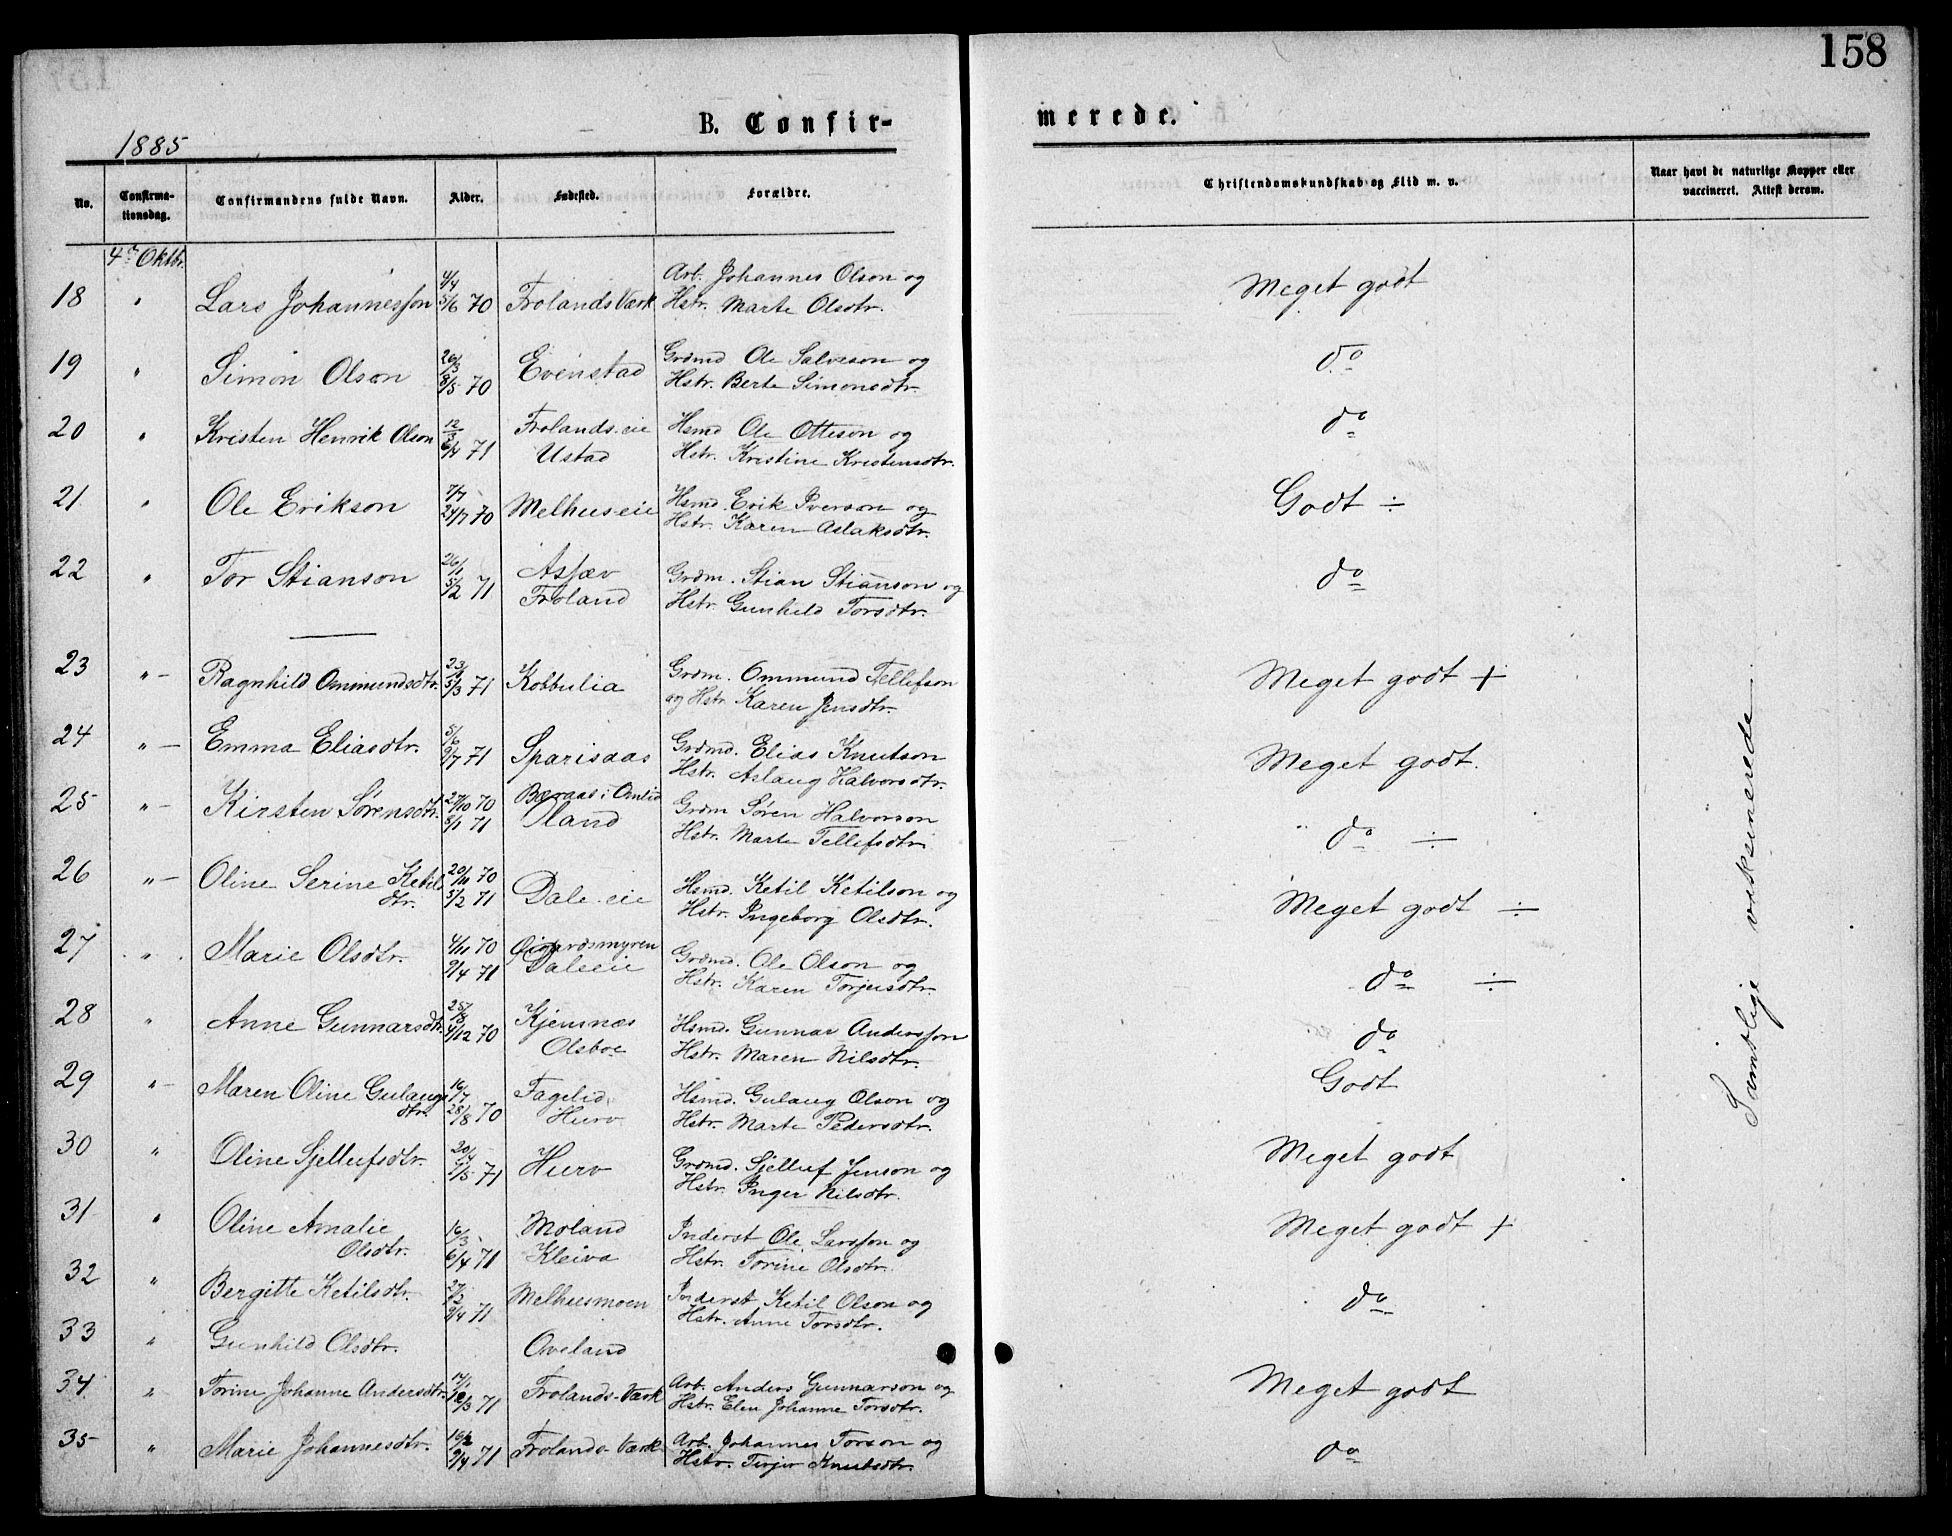 158
B. Confir-
merede.
1885
No.
Confirma-
tionsdag.
Confirmandens fulde Navn.
Alder.
Fødested.
Forældre.
Christendomskundskab og Flid m. v.
Naar havt de naturlige Kopper eller
vaccineret. Attest derom.
4de Oktbr.
18 " Lars Johannesson 4/4 5/6 70 Frolands Værk Arb. Johannes Olson og
Hstr. Marte Olsdtr. Meget godt
19 " Simon Olson 26/3 8/5 70 Evenstad Grdmd Ole Salveson og
Hstr. Berte Simonsdtr. do
20 " Kristen Henrik Olson 12/3 6/4 71 Frolands-eie
Ustad Hsmd Ole Otteson og
Hstr. Kristine Kristensdtr. do
21 " Ole Erikson 7/7 24/7 70 Melhus-eie Hsmd. Erik Iverson og
Hstr. Karen Aslaksdtr. Godt ÷
22 " Tor Stianson 26/1 5/2 71 Asjæv
Froland Grdm. Stian Stianson og
Hstr. Gunhild Torsdtr. do
23 " Ragnhild Ommundsdtr. 5/3 71 Kobbulia Grdm. Ommund Tellefson
og Hstr. Karen Jensdtr. Meget godt +
24 " Emma Eliasdtr. 5/6 9/7 71 Sparisaas Grdmd. Elias Knutson
Hstr. Aslaug Halvorsdtr. Meget godt.
25 " Kirsten Sørensdtr. 27/10 70 8/1 71 i Omlid
Oland Grdm Søren Halvorson
Hstr. Marte Tellefsdtr. do ÷
26 " Oline Serine Ketils
dtr. 20/11 70 5/2 71 Dale-eie Hsmd. Ketil Ketilson og
Hstr. Ingeborg Olsdtr. Meget godt ÷
27 " Marie Olsdtr. 4/11 70 9/4 71 Daleeie Grdmd. Ole Olson og
Hstr. Karen Torjusdtr. do ÷
28 " Anne Gunnarsdtr. 25/8 4/12 70 Kjemnæs
Olsboe Hsmd. Gunnar Andersson
Hstr. Maren Nilsdtr. do
29 " Maren Oline Gulaugs
dtr. 16/7 28/8 70 Fagelid,
Hurv Hsmd. Gulaug Olson og
Hstr. Marte Pedersdtr. Godt
30 " Oline Sjellufsdtr. 20/4 7/5 71 Hurv Grdmd. Sjelluf Jenson og
Hstr. Inger Nilsdtr. Meget godt
31 " Oline Amalie
Olsdtr. 16/3 6/4 71 Moland
Kleiva Inderst Ole Larsson og
Hstr. Torine Olsdtr. Meget godt +
32 " Bergitte Ketilsdtr. 9/4 71 Melhusmoen Inderst Ketil Olson og
Hstr. Anne Torsdtr. do
33 " Gunhild Olsdtr. Oveland
34 " Torine Johanne Andersdtr. 71 Frolands-Værk Arb. Anders Gunnarson og
Hstr. Elen Johanne Torsdtr. Meget godt
35 " Marie Johannesdtr. 16/2 9/4 71 Frolands-Værk Arb. Johannes Torson og
Hstr. Knutsdtr. do
Samtlige vaksinerede